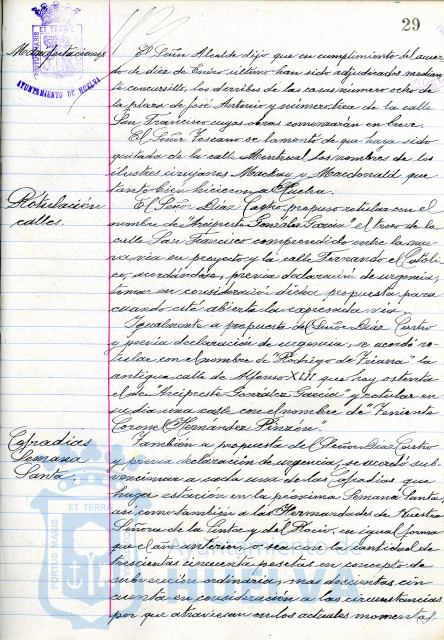 29
Manifestaciones
AYUNTAMIENTO DE HUELVA
El Señor Alcalde dijo que en cumplimiento del acuer-
do de diez de Enero último han sido adjudicados median-
te concursillo, los derribos de las casas número ocho de
la plaza de José Antonio y número tica de la calle
San Francisco cuyas obras comenzarán en breve.
El Señor Vozcano se lamentó de que haya sido
quitado de la calle Menkeval los nombres de los
ilustres cirujanos Mackay y Macdonald que
tanto bien hicieron a Huelva.
Rotulación
calles.
El Señor Díaz Castro, propuso rotular con el
nombre de "Arcipreste González García" el trozo de la
calle San Francisco comprendido entre la nue-
va vía en proyecto y la calle Fernando el Católi-
co, acordándose, previa declaración de urgencia,
tomar en consideración dicha propuesta para
cuando esté abierta la expresada vía.
Igualmente a propuesta del Señor Díaz Castro
y previa declaración de urgencia, se acordó ro-
tular con el nombre de "Rodrigo de Triana" la
antigua calle de Alfonso XIII que hoy ostenta
el de "Arcipreste González García" y rotular en
su día una calle con el nombre de "Teniente
Coronel Hernández Pinzón".
Cofradías
Semana
Santa.
También a propuesta del Señor Díaz Castro
y previa declaración de urgencia, se acordó sub-
vencionar a cada una de las Cofradías que
haga estación en la próxima Semana Santa,
así como también a las Hermandades de Nuestra
Señora de la Cinta y del Rocío, en igual forma
que el año anterior, o sea con la cantidad de
trescientas cincuenta pesetas en concepto de
subvención ordinaria, mas doscientas cin-
cuenta en consideración a las circunstancias
por que atraviesan en los actuales momentos
ET TERRA
PORTUS MARIS
Ayuntamiento de
HUELVA